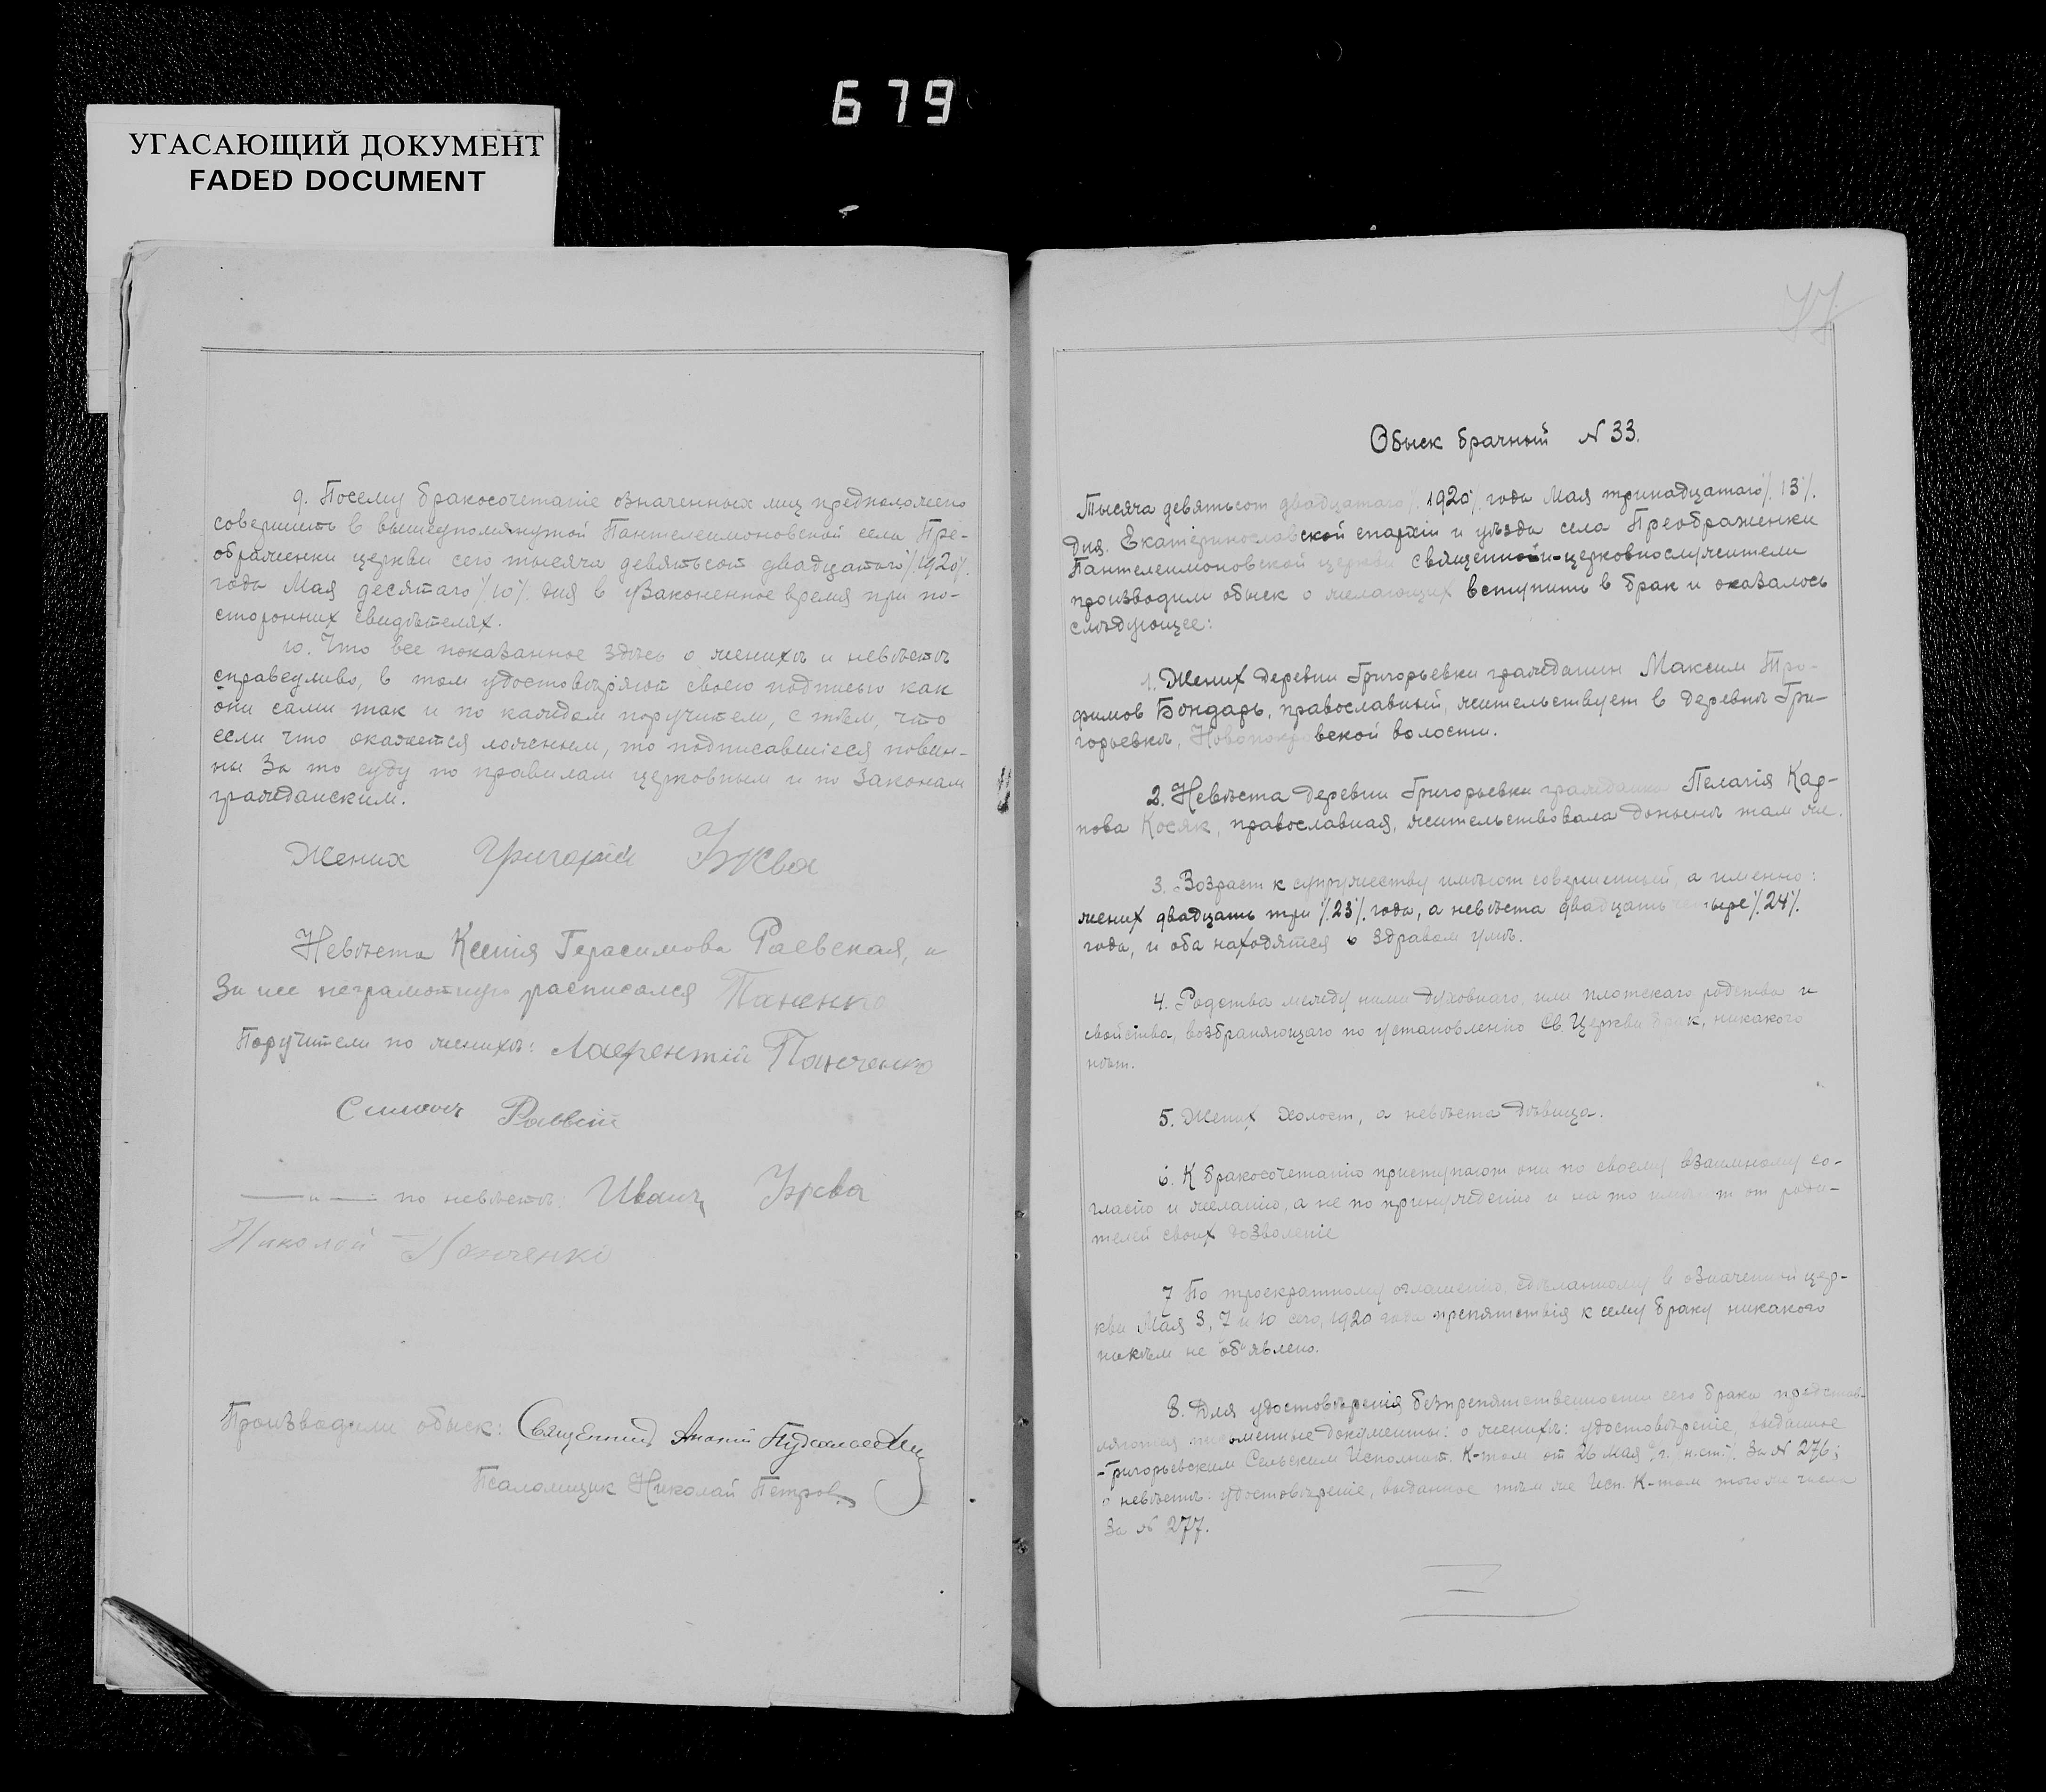 679
УГАСАЮЩИЙ ДОКУМЕНТ
FADED DOCUMENT
9. Посему бракосочетаніе означенных лиц предположено
совершить в вышеупомянутой Пантелеимоновской села Пре-
ображенки церкви сего тысяча девятьсот двадцатаго /1920/.
года Мая десятаго /10/. дня в узаконенное время при по-
сторонних свидѣтелях.
10. Что все показанное здѣсь о женихѣ и невѣстѣ
справедливо, в том удостовѣряют своею подписью как
они сами так и по каждом поручители, с тѣм, что
если что окажется ложным, то подписавшіеся повин-
ны за то суду по правилам церковным и по законам
гражданским.
Жених Григорій
Невѣста Ксенія Герасимова Раевская, а
за нее неграмотную расписался
Поручители по женихѣ: Лаврентій Панченко
Симонъ
—— „ —— по невѣстѣ: Иванъ
Николай Панченко
Производили обыск: Священник
Псаломщик Николай Петров
Обыск брачный № 33.
Тысяча девятьсот двадцатаго /. 1920/. года Мая тринадцатаго /. 13/.
дня. Екатеринославской епархіи и уѣзда села Преображенки
Пантелеимоновской церкви священно-и-церковнослужители
производили обыск о желающих вступить в брак и оказалось
слѣдующее:
1. Жених деревни Григорьевки гражданин Максим Тро-
фимов Бондарь, православный, жительствует в деревнѣ Гри-
горьевкѣ, Новопокровской волости.
2. Невѣста деревни Григорьевки гражданка Пелагія Кар-
пова Косяк, православная, жительствовала донынѣ там же.
3. Возраст к супружеству имѣют совершенный, а именно:
жених двадцать три /. 23/. года, а невѣста двадцать четыре /. 24/.
года, и оба находятся в здравом умѣ.
4. Родства между ними духовнаго, или плотскаго родства и
свойства, возбраняющаго по установленію Св. Церкви брак, никакого
нѣт.
5. Жених холост, а невѣста дѣвица.
6. К бракосочетанію приступают они по своему взаимному со-
гласію и желанію, а не по принужденію и на то имѣют от роди-
телей своих дозволеніе
7 По троекратному оглашенію, сдѣланному в означенной цер-
кви Мая 3, 7 и 10 сего, 1920 года препятствія к сему браку никакого
никѣм не объявлено.
8. Для удостовѣренія безпрепятственности сего брака представ-
ляются письменные документы: о женихѣ: удостовѣреніе, выданное
Григорьевским Сельским Исполнит. К-том от 26 мая с/г. н.ст/. за № 276;
о невѣстѣ: удостовѣреніе, выданное тѣм же Исп. К-том того же числа
за № 277.